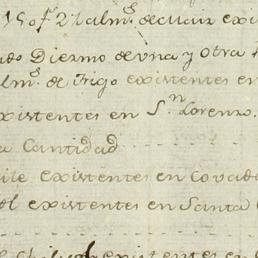 15 of 2½ alm.s de maiz exi
do Diezmo de una y otra
lm.s de Trigo existentes en
xistentes en S.n Lorenzo.
a Cantidad
ile existentes en Covad
el existentes en Santa
existentes en